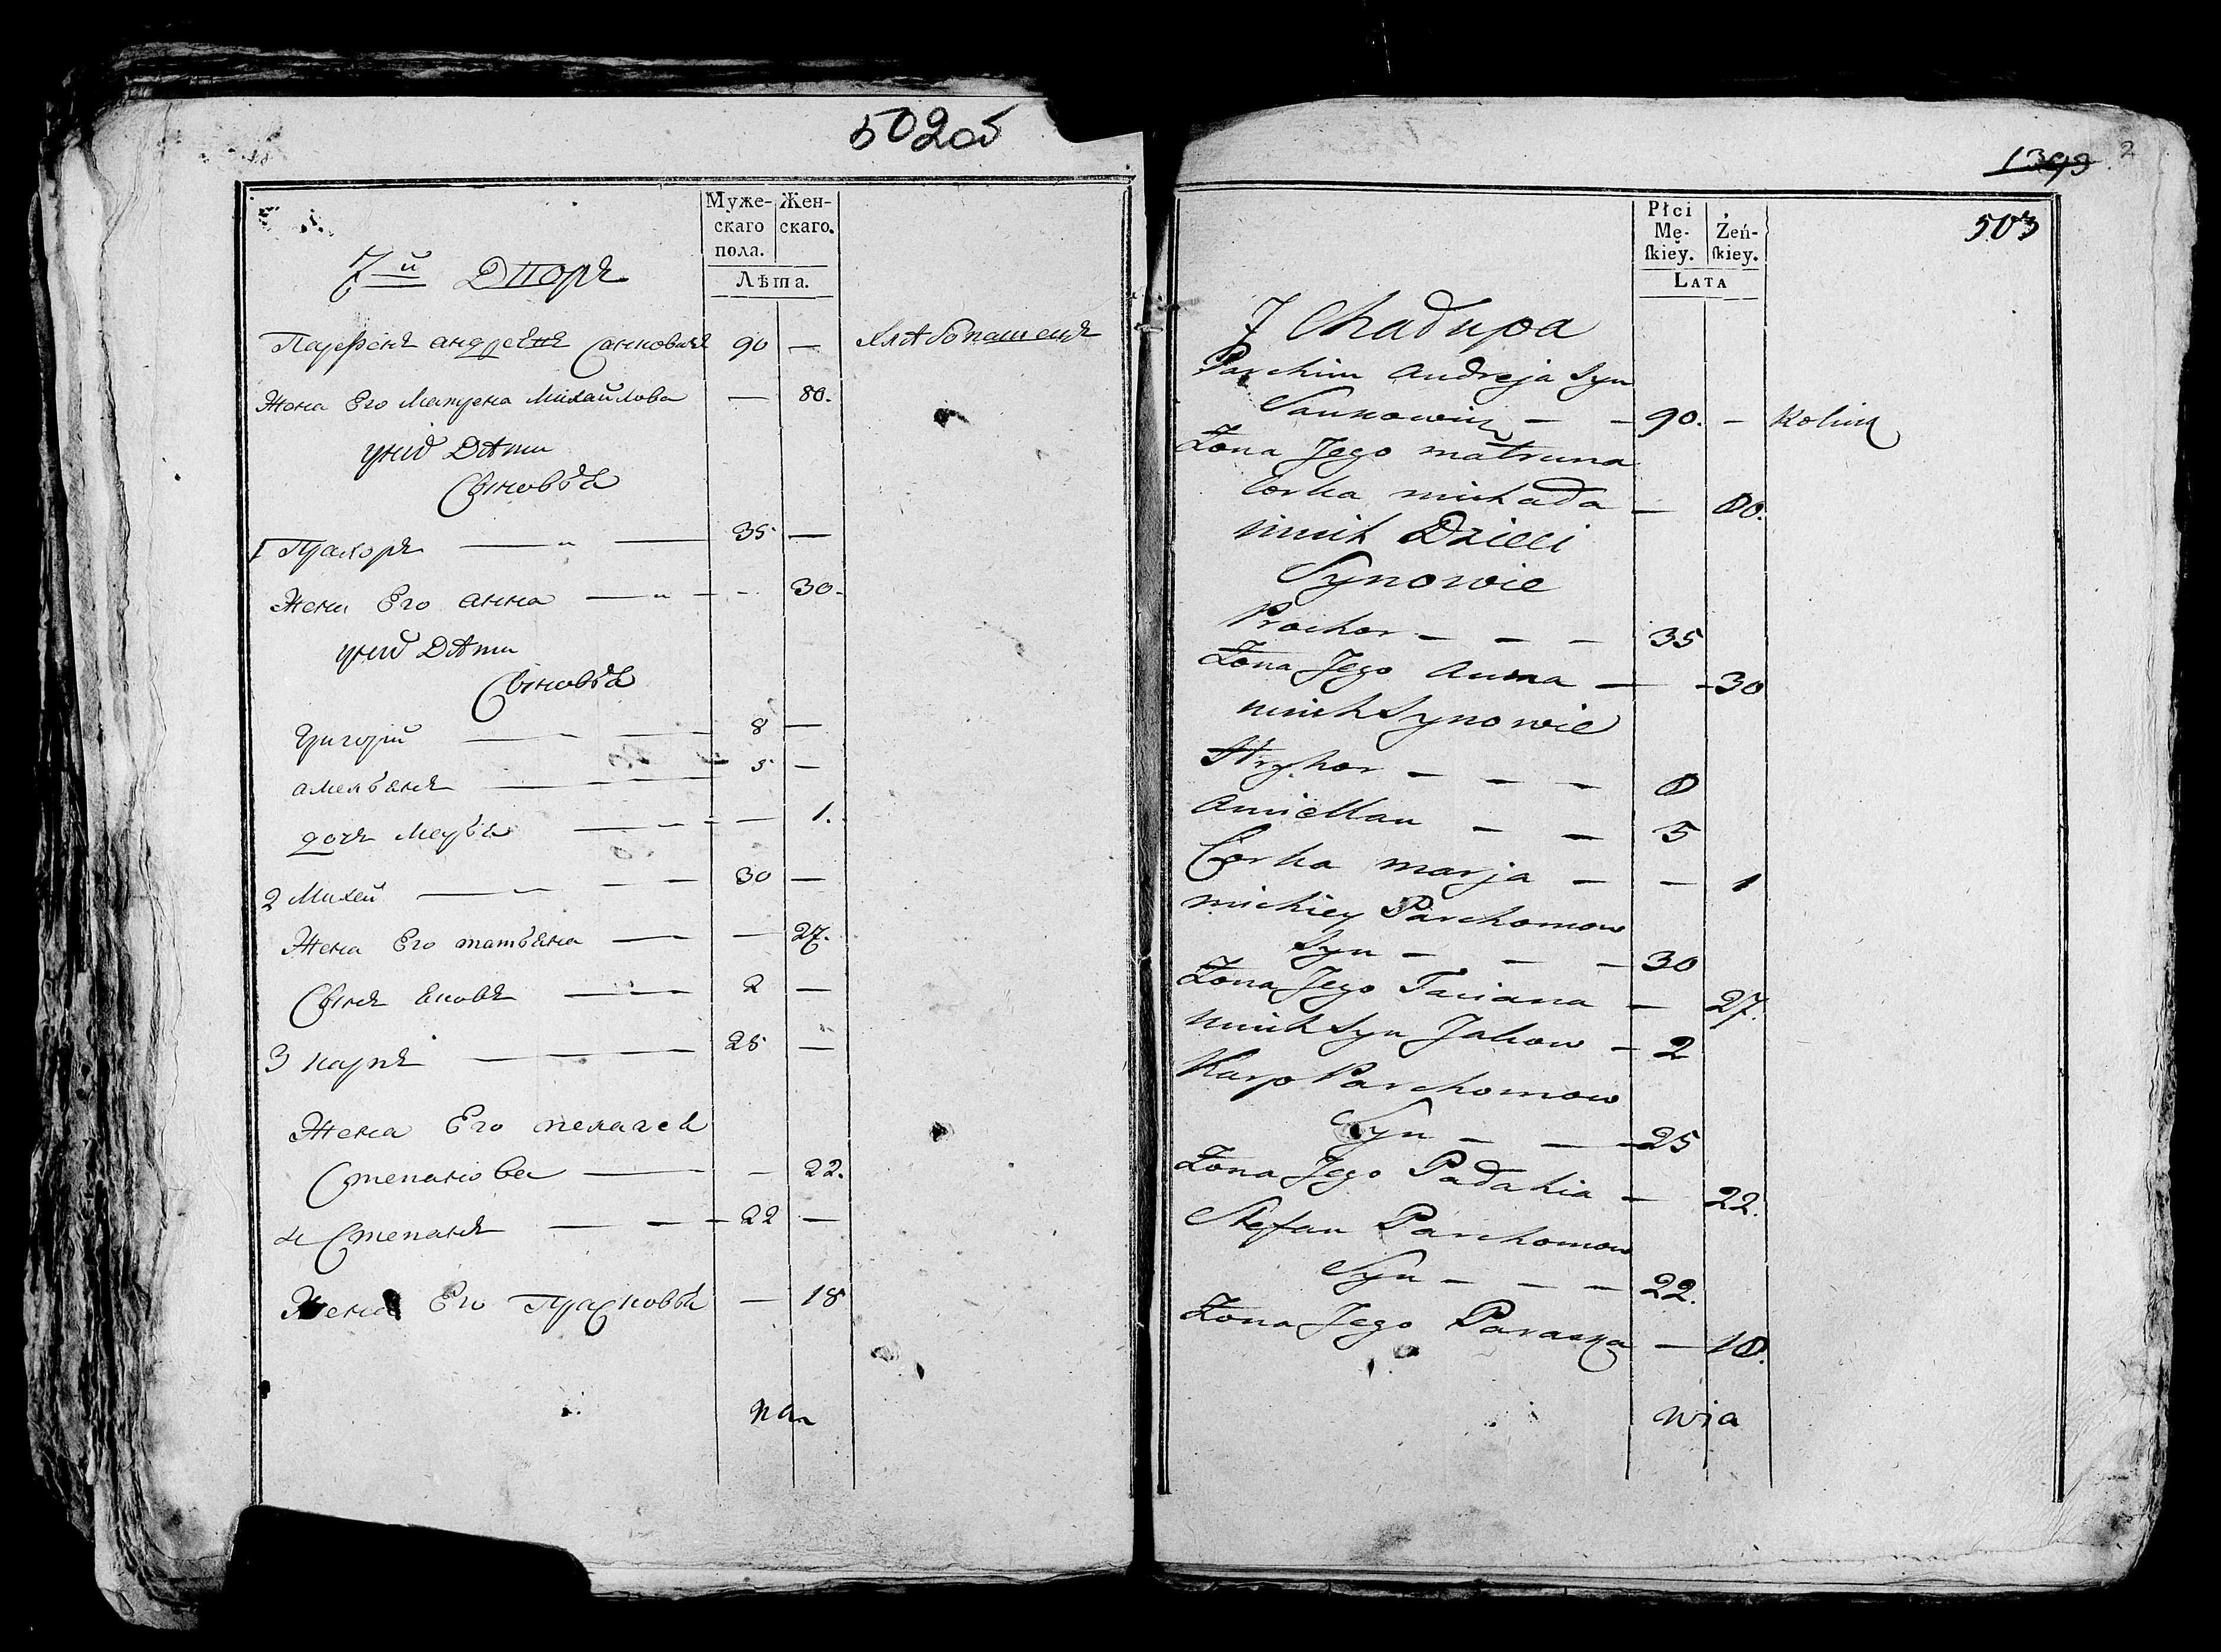 502об
Муже-
скаго
пола.
Жен-
скаго.
Лѣта.
7й Дворъ
Парфенъ андреевъ Санковичъ 90 — хлѣбопашецъ
Жена Его Матрена Михайлова — 80.
унихъ Дѣти
Сыновья
1 Прахоръ — 35 —
Жена Его анна — 30.
унихъ Дѣти
Сыновья
Григорій — 8 —
амельянъ — 5 —
дочь Марья — 1.
2 Михей — 30 —
Жена Его татьяна — 27.
Сынъ Яковъ — 2 —
3 карпъ — 25 —
Жена Его пелагея
Степанова — 22.
4 Степанъ — 22 —
Жена Его Прасковья — 18
на
1393 2
503
Płci
Mę-
skiey.
Żeń-
skiey.
LATA
7 Chałupa
Parchim Andreja Syn
Sankowicz — 90. — Rolnik
Żona Jego matruna
Corka michała — 80.
unich Dzieci
Synowie
Prochor — 35
Żona Jego Anna — 30
unich Synowie
Hryhor — 8
Amiellan — 5
Corka marja — 1
michiey Parchomow
Syn — 30
Żona Jego Taciana — 27.
unich Syn Jakow — 2
Karp Parchomow
Syn — 25
Żona Jego Pałahia — 22.
Stefan Parchomow
Syn — 22.
Żona Jego Paraska — 18.
wia